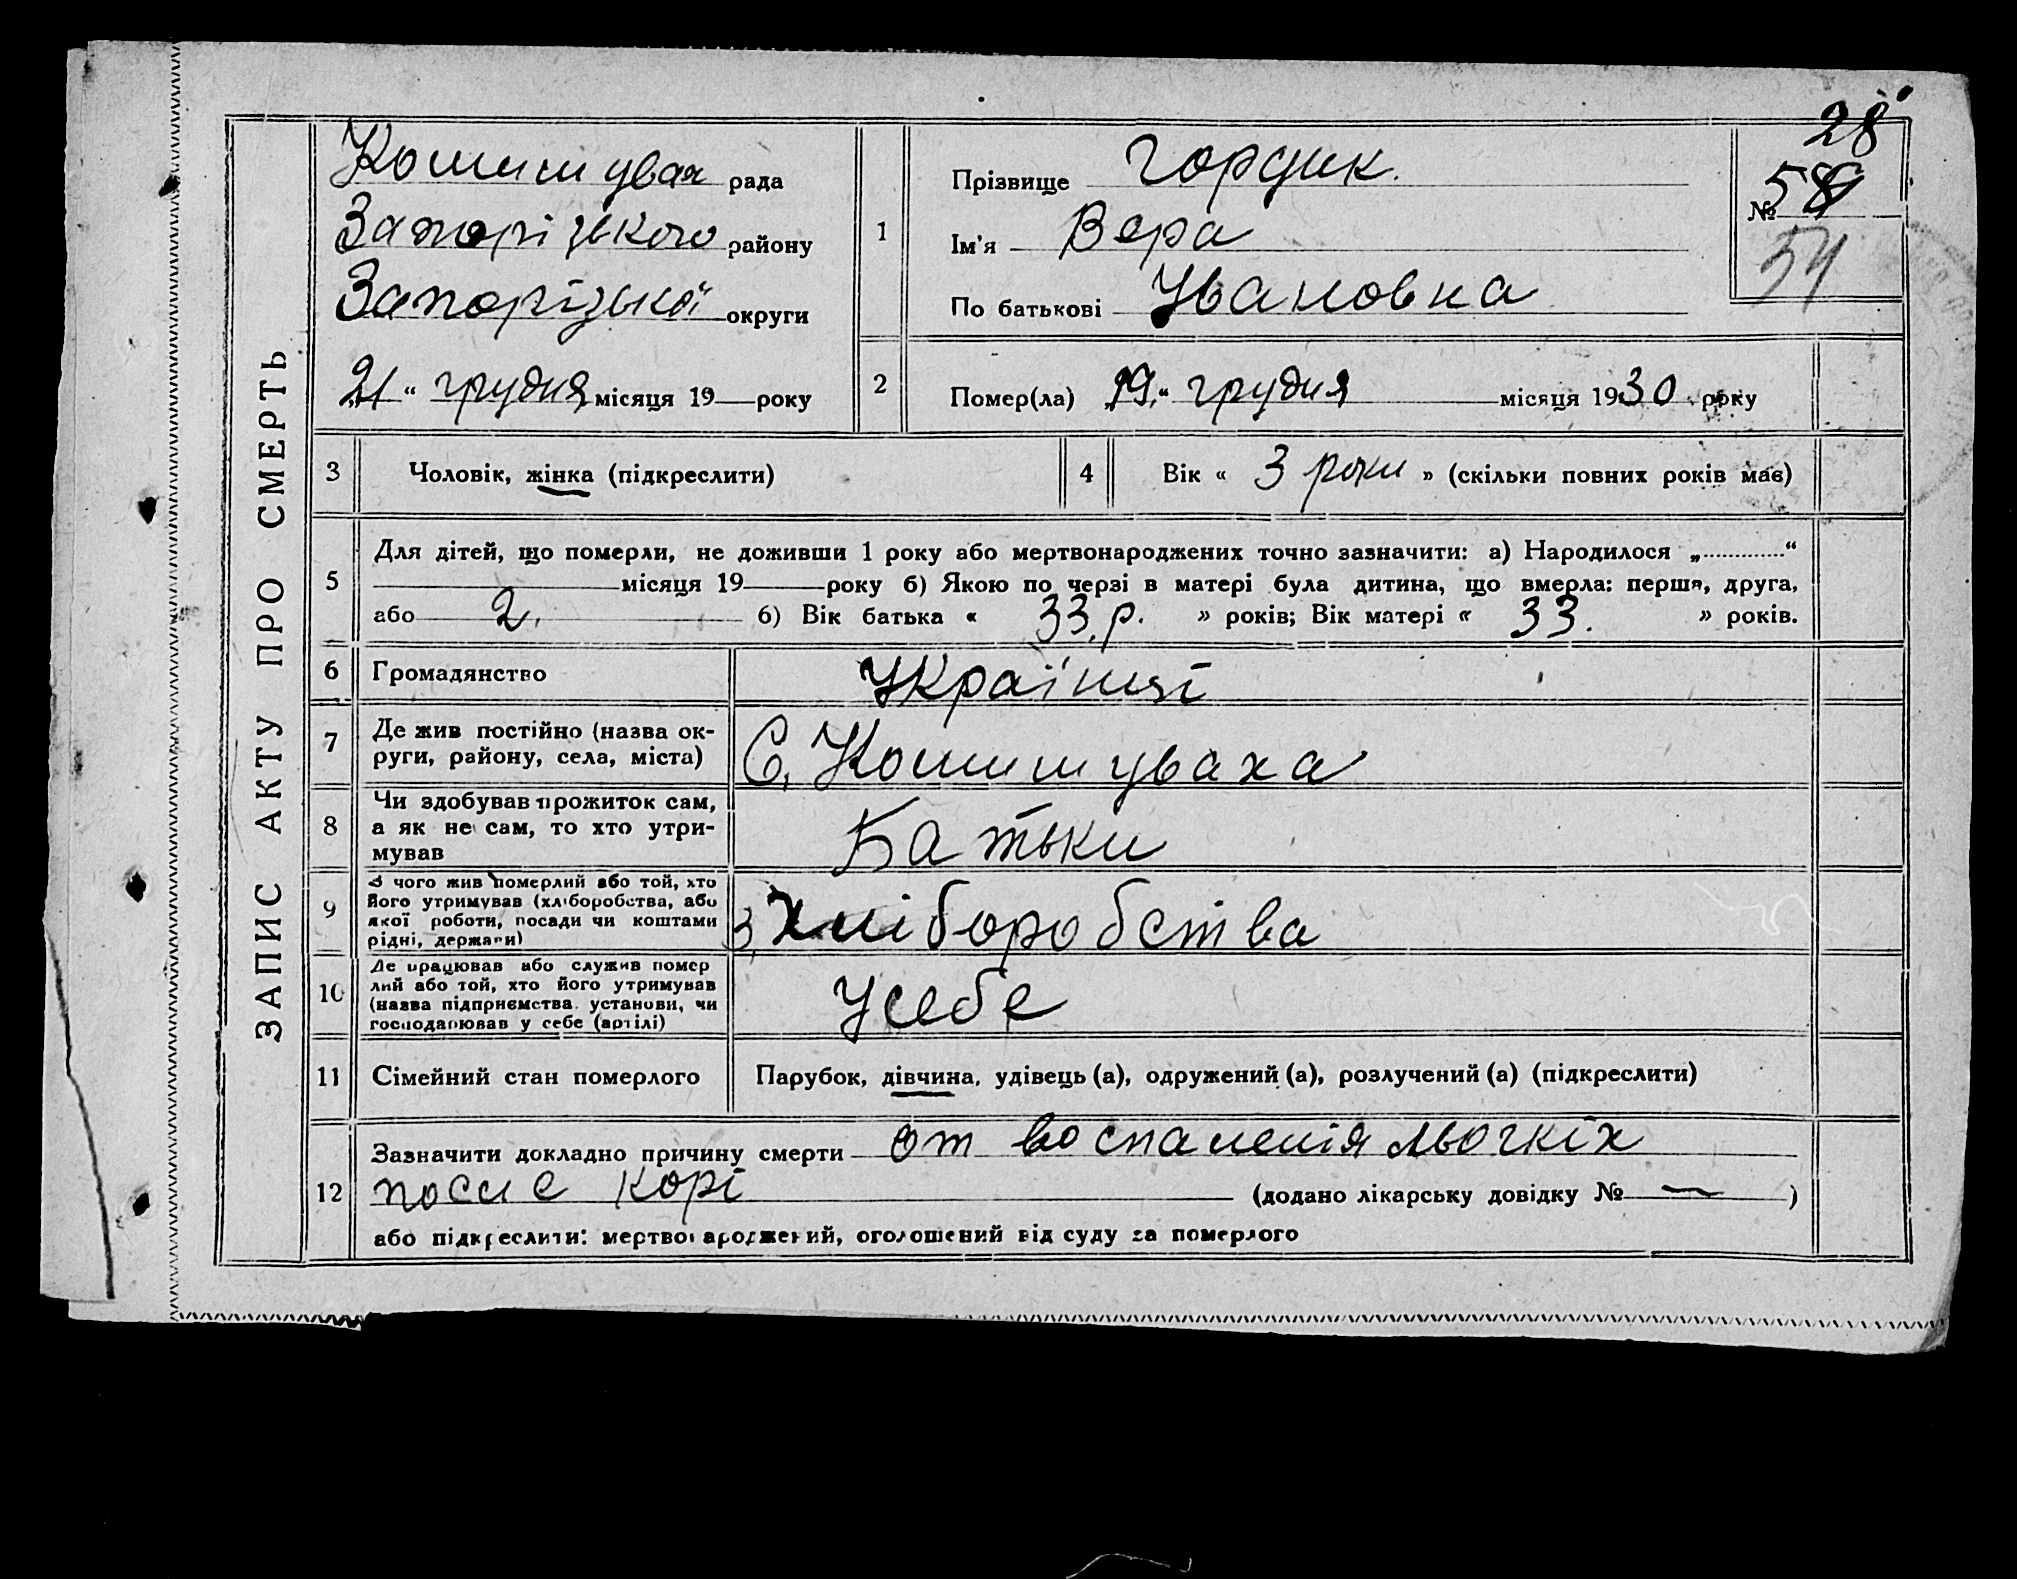 ЗАПИС АКТУ ПРО СМЕРТЬ
Комишувах рада
Запорізького району
Запорізької округи
„21“ грудня місяця 19 року
1
Прізвище Гордик.
Ім'я Вера
По батькові Увановна
28
№ 58
54
2
Помер(ла) „19“ грудня місяця 1930 року
3 Чоловік, жінка (підкреслити)
4 Вік « 3 роки » (скільки повних років має)
5 Для дітей, що померли, не доживши 1 року або мертвонароджених точно зазначити: а) Народилося „.............“
місяця 19 року б) Якою по черзі в матері була дитина, що вмерла: перша, друга,
або 2. б) Вік батька « 33.р. » років; Вік матері « 33. » років.
6 Громадянство Українці
7 Де жив постійно (назва ок-
руги, району, села, міста) С, Комишуваха
8 Чи здобував прожиток сам,
а як не сам, то хто утри-
мував Батьки
9 З чого жив померлий або той, хто
його утримував (хліборобства, або
якої роботи, посади чи коштами
рідні, держави) З Хліборобства
10 Де працював або служив помер
лий або той, хто його утримував
(назва підприємства, установи, чи
господарював у себе (артілі) Усебе
11 Сімейний стан померлого Парубок, дівчина, удівець (а), одружений (а), розлучений (а) (підкреслити)
12 Зазначити докладно причину смерти от воспаленія льогкіх
после корі (додано лікарську довідку № — )
або підкреслити: мертвонароджений, оголошений від суду за померлого